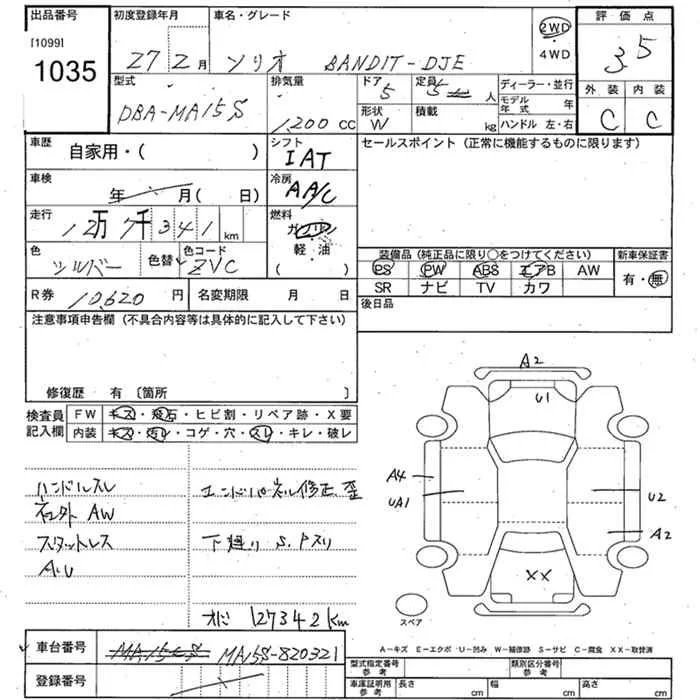 出品番号
[1099]
1035
初度登録年月
27 2 月
車名・グレード
ソリオ BANDIT-DJE
2WD
4WD
評価点
3.5
外装 内装
C C
型式
DBA-MA15S
排気量
1,200 cc
ドア
5
定員
5 人
形状
W
積載
kg
ディーラー・並行
モデル年式 年
ハンドル 左・右
車歴
自家用・( )
シフト
IAT
セールスポイント (正常に機能するものに限ります)
車検
年 月( 日)
冷房
AA/C
走行
12万7千341 km
燃料
ガソリン
軽・油
( )
色
シルバー
色替
色コード
ZVC
装備品 (純正品に限り○をつけてください)
PS PW ABS エアB AW
SR ナビ TV カワ
新車保証書
有・無
R券
10620 円
名変期限 月 日
後日品
注意事項申告欄 (不具合内容等は具体的に記入して下さい)
修復歴 有 〔箇所 〕
検査員記入欄
FW キズ・飛石・ヒビ割・リペア跡・X要
内装 キズ・汚レ・コゲ・穴・スレ・キレ・破レ
ハンドルスレ
AW
スタットレス
エンドパネル修正、歪
下廻り S、Pスリ
オド 127342km
A2
U1
A4
UA1
U2
A2
XX
スペア
A-キズ E-エクボ U-凹み W-補修跡 S-サビ C-腐食 XX-取替済
車台番号
MA15S
MA15S-820321
登録番号
型式指定番号 参考
類別区分番号 参考
車庫証明用 参考
長さ cm
幅 cm
高さ cm